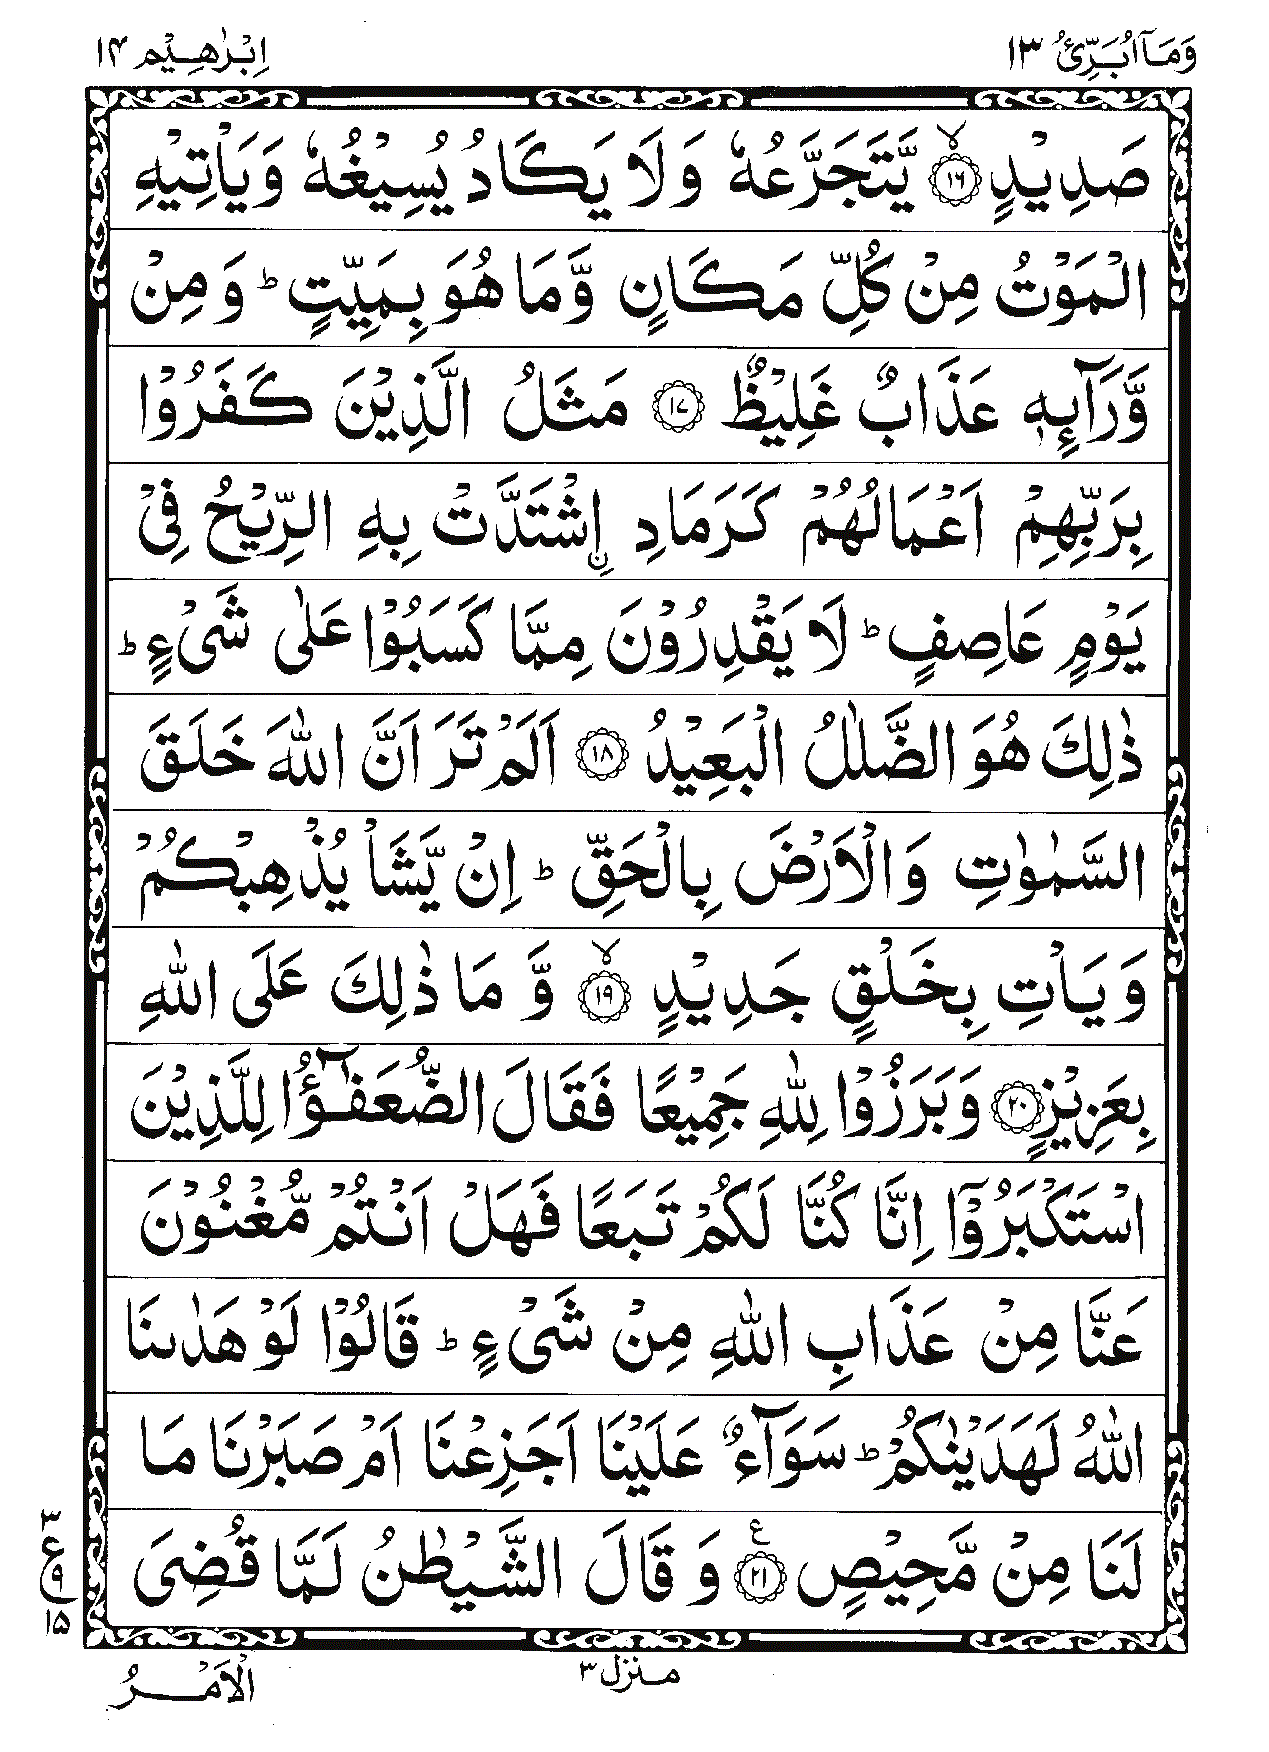 وَمَآ اُبَرِّئُ ١٣
اِبْرٰهِيْم ١٤
صَدِيْدٍ ۙ‏﴿۱۶﴾ يَّتَجَرَّعُهٗ وَلَا يَكَادُ يُسِيْغُهٗ وَيَاْتِيْهِ
الْمَوْتُ مِنْ كُلِّ مَكَانٍ وَّمَا هُوَ بِمَيِّتٍ ؕ وَمِنْ
وَّرَآئِهٖ عَذَابٌ غَلِيْظٌ ﴿۱۷﴾ مَثَلُ الَّذِيْنَ كَفَرُوْا
بِرَبِّهِمْ اَعْمَالُهُمْ كَرَمَادِ ۨاشْتَدَّتْ بِهِ الرِّيْحُ فِیْ
يَوْمٍ عَاصِفٍ ؕ لَا يَقْدِرُوْنَ مِمَّا كَسَبُوْا عَلٰى شَیْءٍ ؕ
ذٰلِكَ هُوَ الضَّلٰلُ الْبَعِيْدُ ﴿۱۸﴾ اَلَمْ تَرَ اَنَّ اللّٰهَ خَلَقَ
السَّمٰوٰتِ وَالْاَرْضَ بِالْحَقِّ ؕ اِنْ يَّشَاْ يُذْهِبْكُمْ
وَيَاْتِ بِخَلْقٍ جَدِيْدٍ ۙ﴿۱۹﴾ وَّمَا ذٰلِكَ عَلَى اللّٰهِ
بِعَزِيْزٍ ﴿۲۰﴾ وَبَرَزُوْا لِلّٰهِ جَمِيْعًا فَقَالَ الضُّعَفٰٓؤُا لِلَّذِيْنَ
اسْتَكْبَرُوْۤا اِنَّا كُنَّا لَكُمْ تَبَعًا فَهَلْ اَنْتُمْ مُّغْنُوْنَ
عَنَّا مِنْ عَذَابِ اللّٰهِ مِنْ شَیْءٍ ؕ قَالُوْا لَوْ هَدٰىنَا
اللّٰهُ لَهَدَيْنٰكُمْ ؕ سَوَآءٌ عَلَيْنَاۤ اَجَزِعْنَاۤ اَمْ صَبَرْنَا مَا
لَنَا مِنْ مَّحِيْصٍ ﴿۲۱﴾ع وَقَالَ الشَّيْطٰنُ لَمَّا قُضِیَ
٣
ع
٩
١۵
منزل ٣
الْاَمْرُ